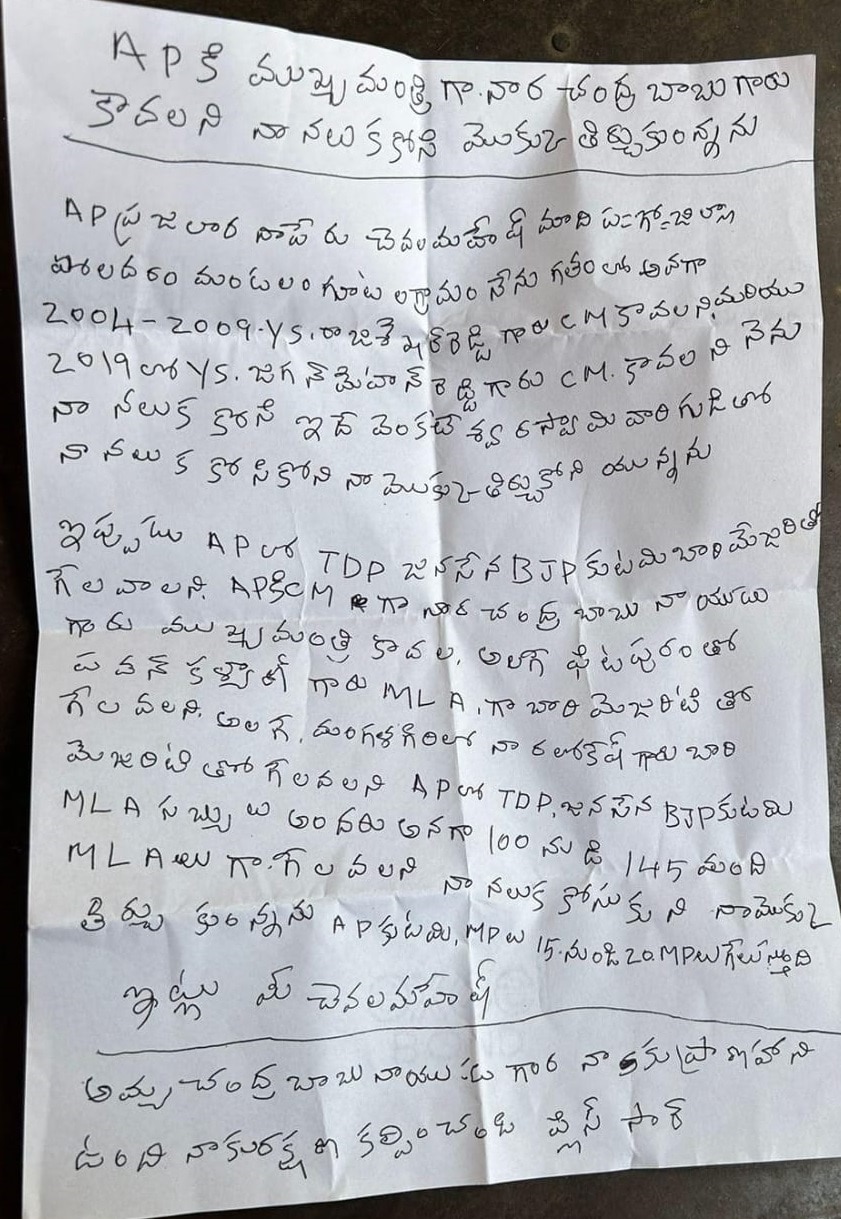 AP కి ముఖ్యమంత్రి గా. నార చంద్ర బాబు గారు
కావలని నా నలుక కోసి మొకుu తిర్చుకుంన్నను
AP ప్రజలార నాపేరు చెవల మహేష్ మాది ప-గో-జిల్లా
పోలవరం మండలం గూటల గ్రామం నేను గతంలో అనగా
2004-2009. YS. రాజశేఖర్ రెడ్డి గారు CM కావలని, మరియు
2019 లో YS. జగన్ మోహన్ రెడ్డి గారు CM. కావలని నేను
నా నలుక కోసి ఇదే వెంకటేశ్వరస్వామి వారి గుడిలో
నా నలుక కోసికోని నా మొకుu తిర్చుకోని యున్నను
ఇప్పుడు AP లో TDP జనసేన BJP కుటమి బారి మేజరితో
గేలవాలని. APకి CM గా నార చంద్ర బాబు నాయుడు
గారు ముఖ్యమంత్రి కావల, అలగే పిటపురంతో
పవన్ కళ్యాణ్ గారు MLA. గా బారి మెజరిటితో
గేలవలని. అలగే, మంగళగిరిలో నారలోకేష్ గారు బారి
మెజరిటితో గేలవలని AP లో TDP, జనసేన BJP కుటమి
MLA సబ్యులు అందరు అనగా 100 నుడి 145 మంది
MLA లు గా. గేలవలని నా నలుక కోసుకుని నా మొకుu
తిర్చుకుంన్నను AP కుటమి, MPలు 15. నుండి 20. MPలు గేలుస్తాది
ఇట్లు మీ చెవల మహేష్
అమ్మ చంద్ర బాబు నాయుడు గార నాకు ప్రాణహాని
ఉంది నాకు రక్షణ కల్పించండి ప్లిస్ సార్